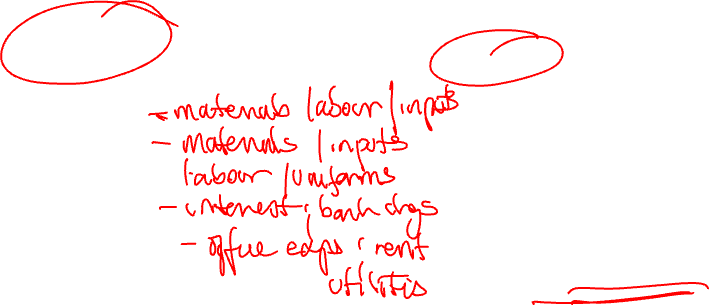 - materials labour / inputs
- materials / inputs
labour / uniforms
- interest; bank chgs
- office exps: rent
utilitis